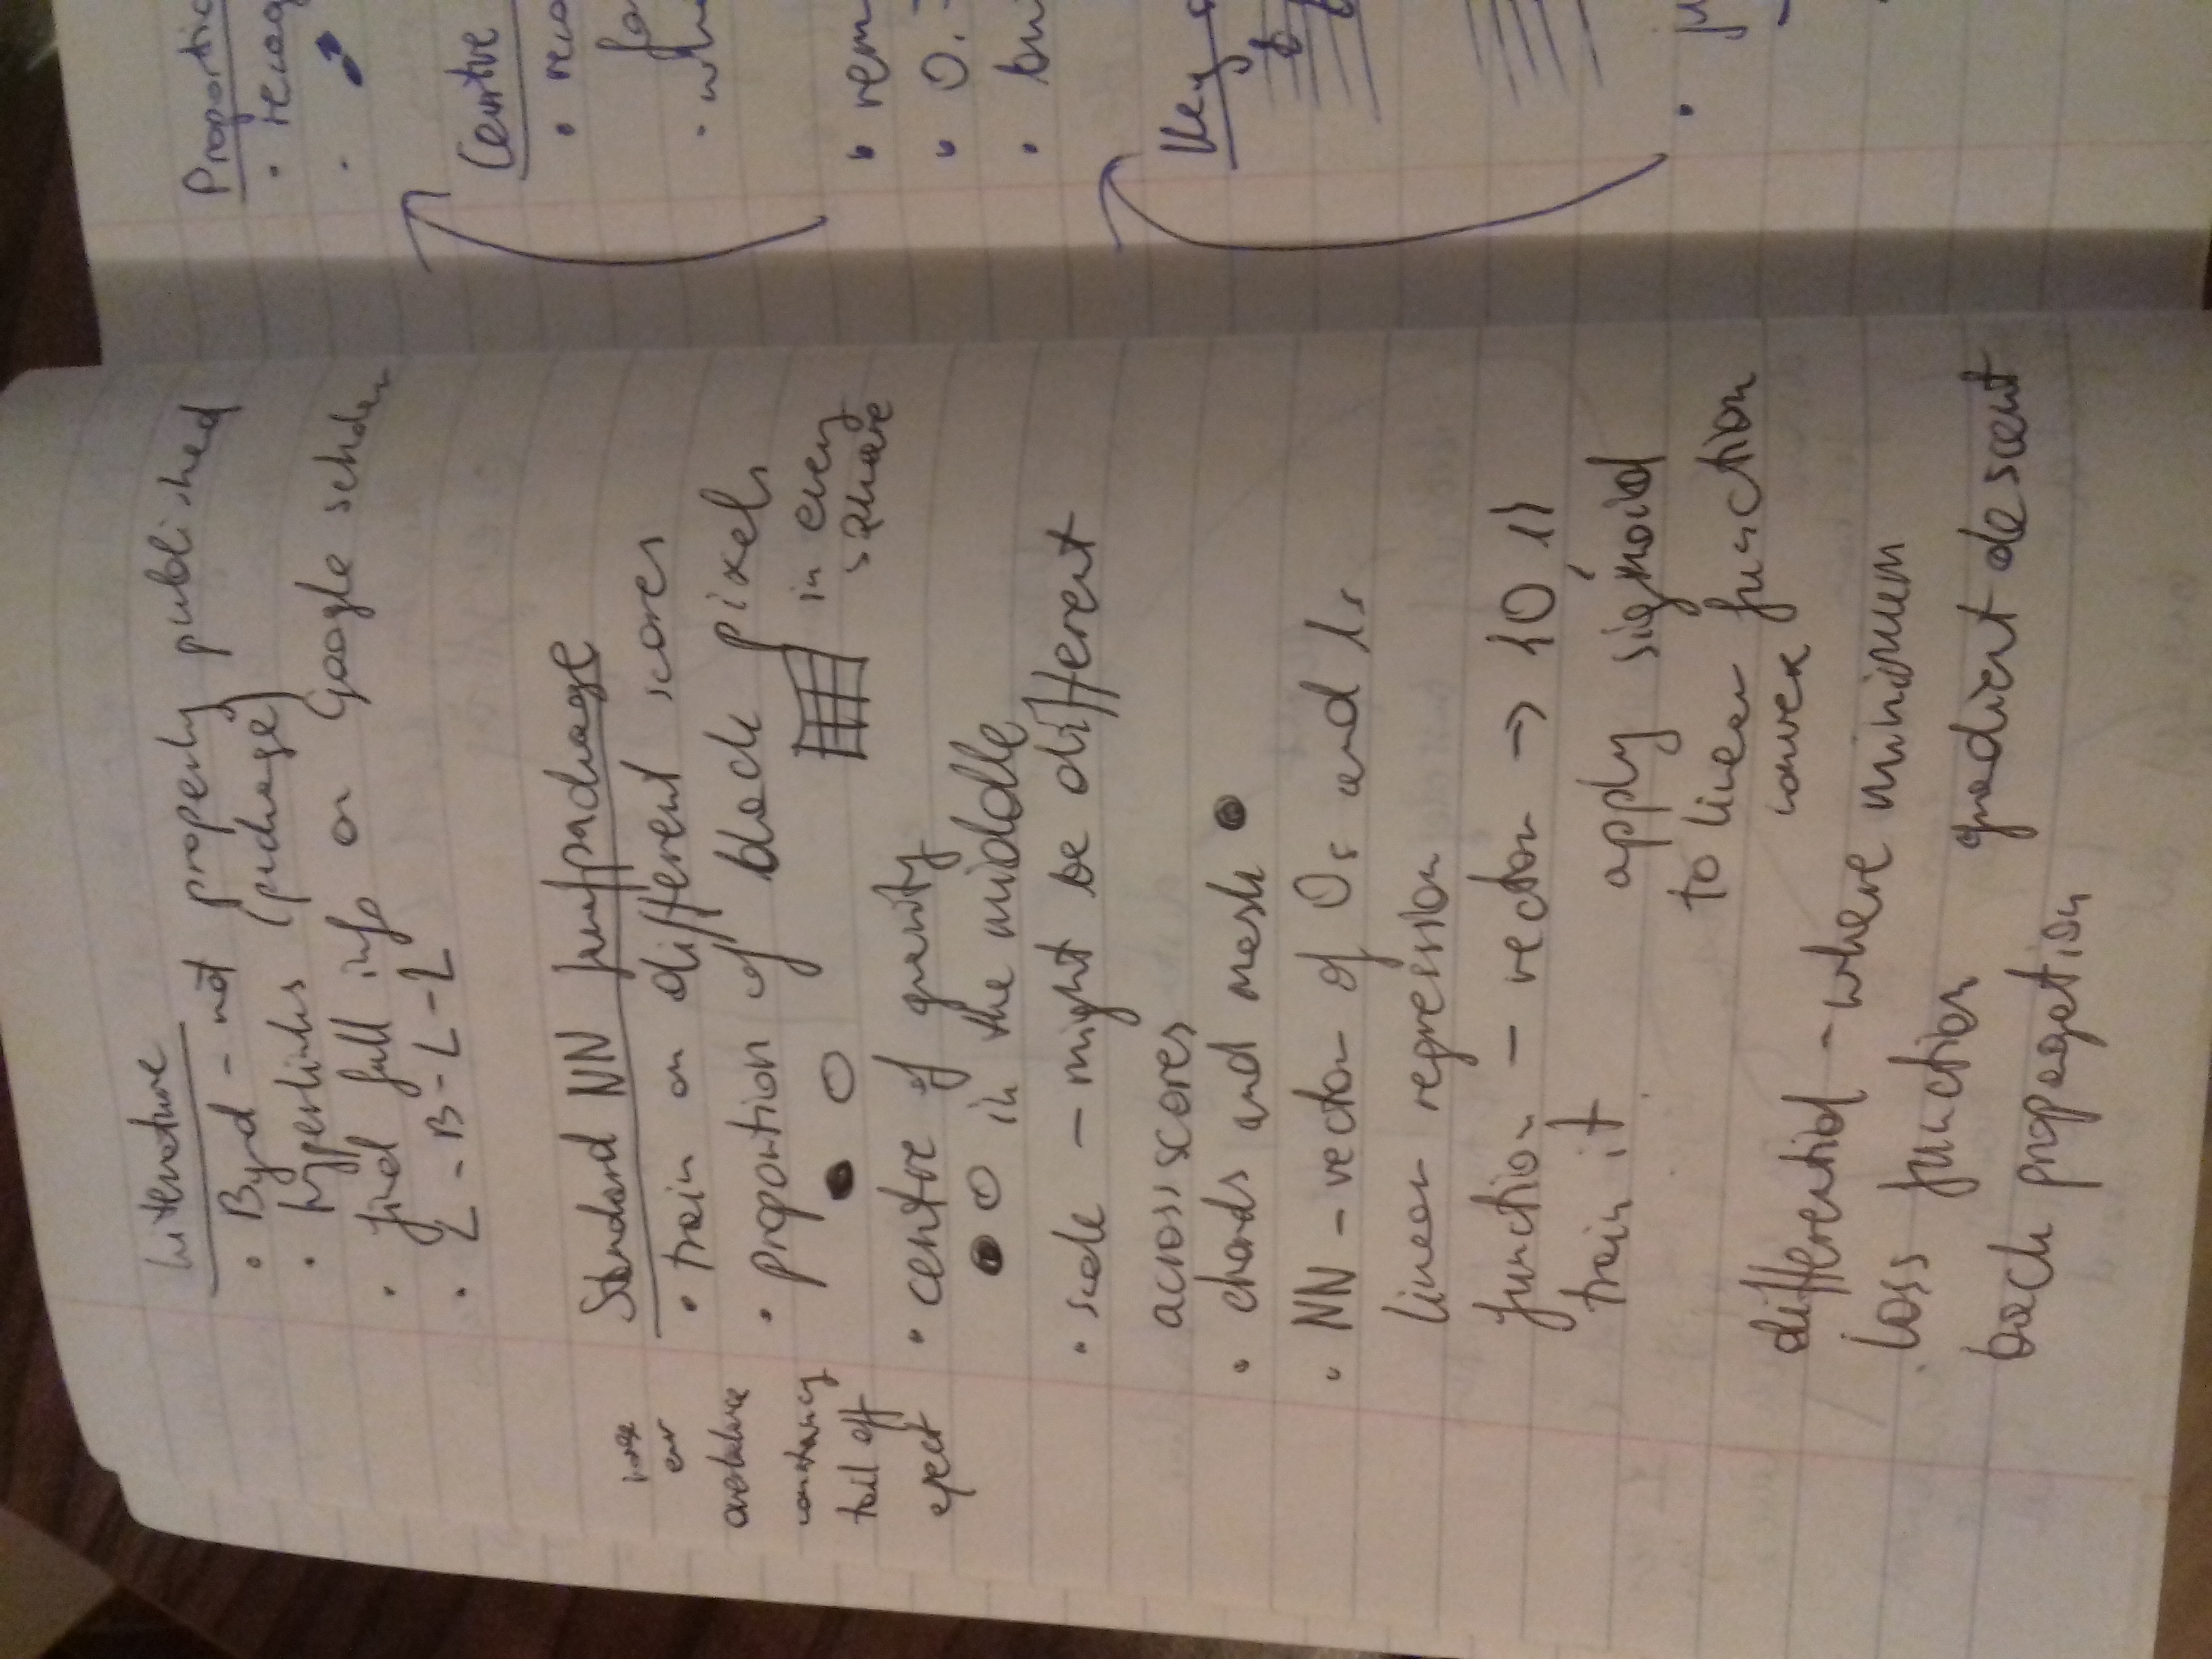 Literature
• Byrd - not properly published
• hyperlinks (package)
• find full info on Google scholar
• L - B - L - L
Standard NN func/package
• train on different scores
• proportion of black pixels
in every
square
• centre of gravity
in the middle
• scale - might be different
across scores
• chords and mask
• NN - vector of 0s and 1s
linear regression
function - vector → {0, 1}
train it
apply sigmoid
to linear function
convex
differential - where minimum
loss function
gradient descent
back propagation
constancy
tail off
eject
Proportio
• recog
Centre
• reco
fo
• whe
• rem
• 0.
• bu
Key